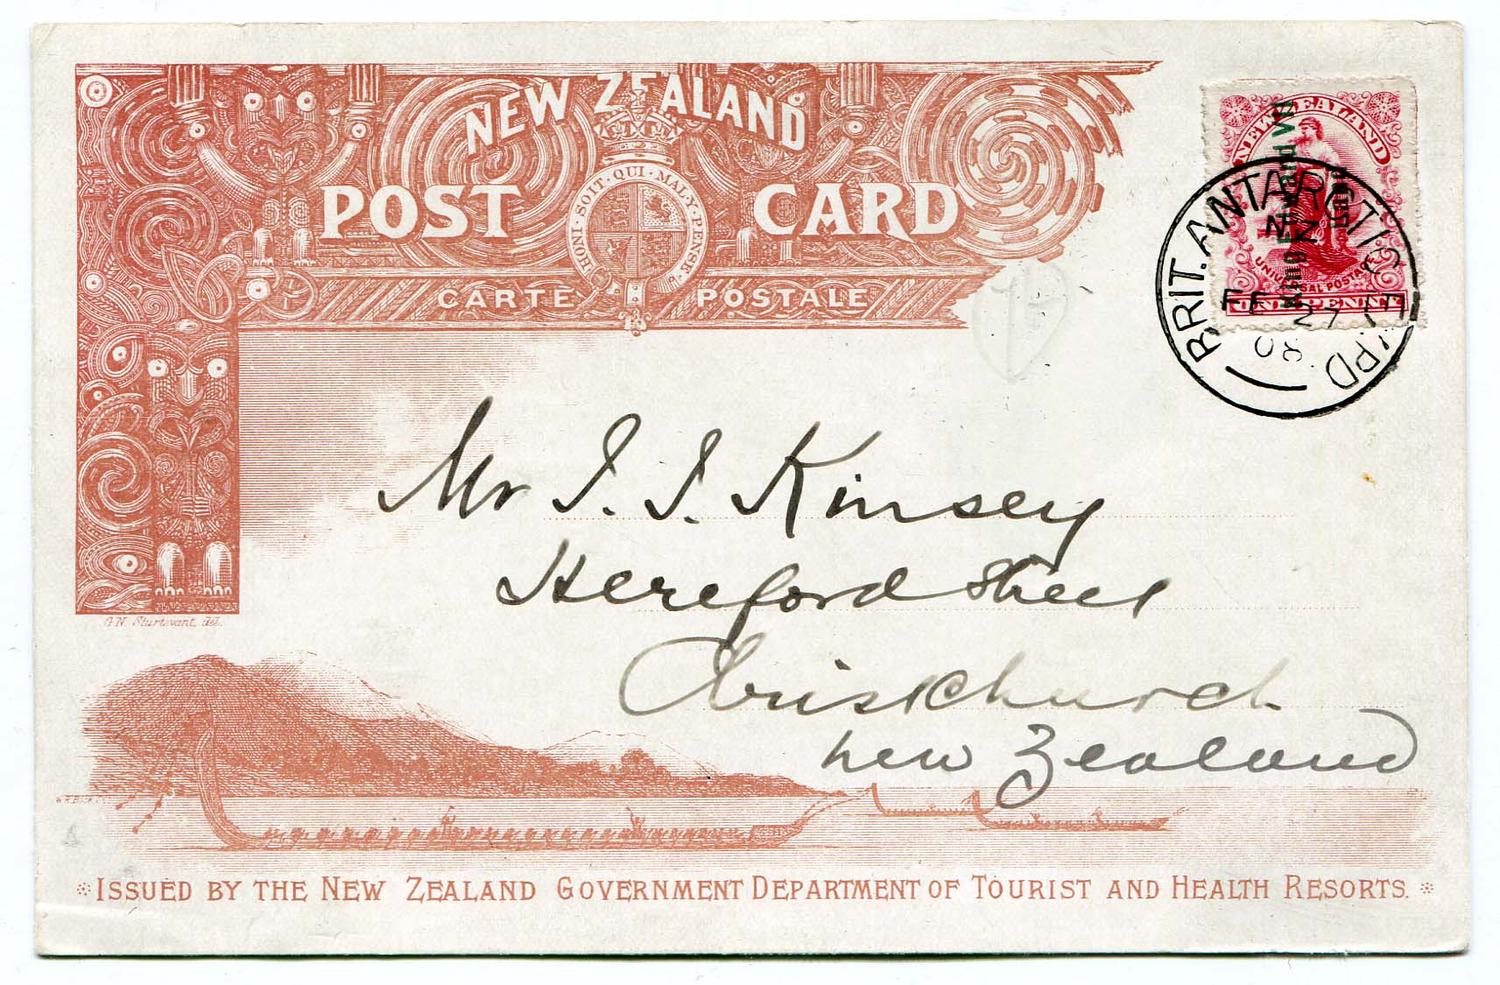 NEW ZEALAND
POST CARD
HONI · SOIT · QUI · MAL · Y · PENSE
CARTE POSTALE
NEW ZEALAND
King Edward VII
Land
UNIVERSAL POSTAGE
ONE PENNY
BRIT. ANTARCTIC EXPD
FE 27
08
Mr J. J. Kinsey
Hereford Street
Christchurch
New Zealand
G.N. Sturtevant, del.
ISSUED BY THE NEW ZEALAND GOVERNMENT DEPARTMENT OF TOURIST AND HEALTH RESORTS.